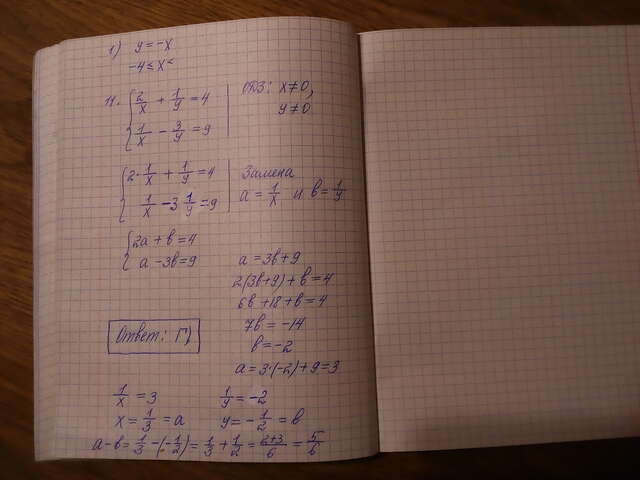 1) y = -x
-4 ≤ x <
11. { 2/x + 1/y = 4
1/x - 3/y = 9
ОДЗ: x ≠ 0,
y ≠ 0
{ 2·1/x + 1/y = 4
1/x - 3 1/y = 9
Замена
a = 1/x и b = 1/y
{ 2a + b = 4
a - 3b = 9
a = 3b + 9
2(3b+9) + b = 4
6b + 18 + b = 4
7b = -14
b = -2
a = 3·(-2) + 9 = 3
Ответ: Г)
1/x = 3
1/y = -2
x = 1/3 = a
y = -1/2 = b
a - b = 1/3 - (-1/2) = 1/3 + 1/2 = 2+3/6 = 5/6